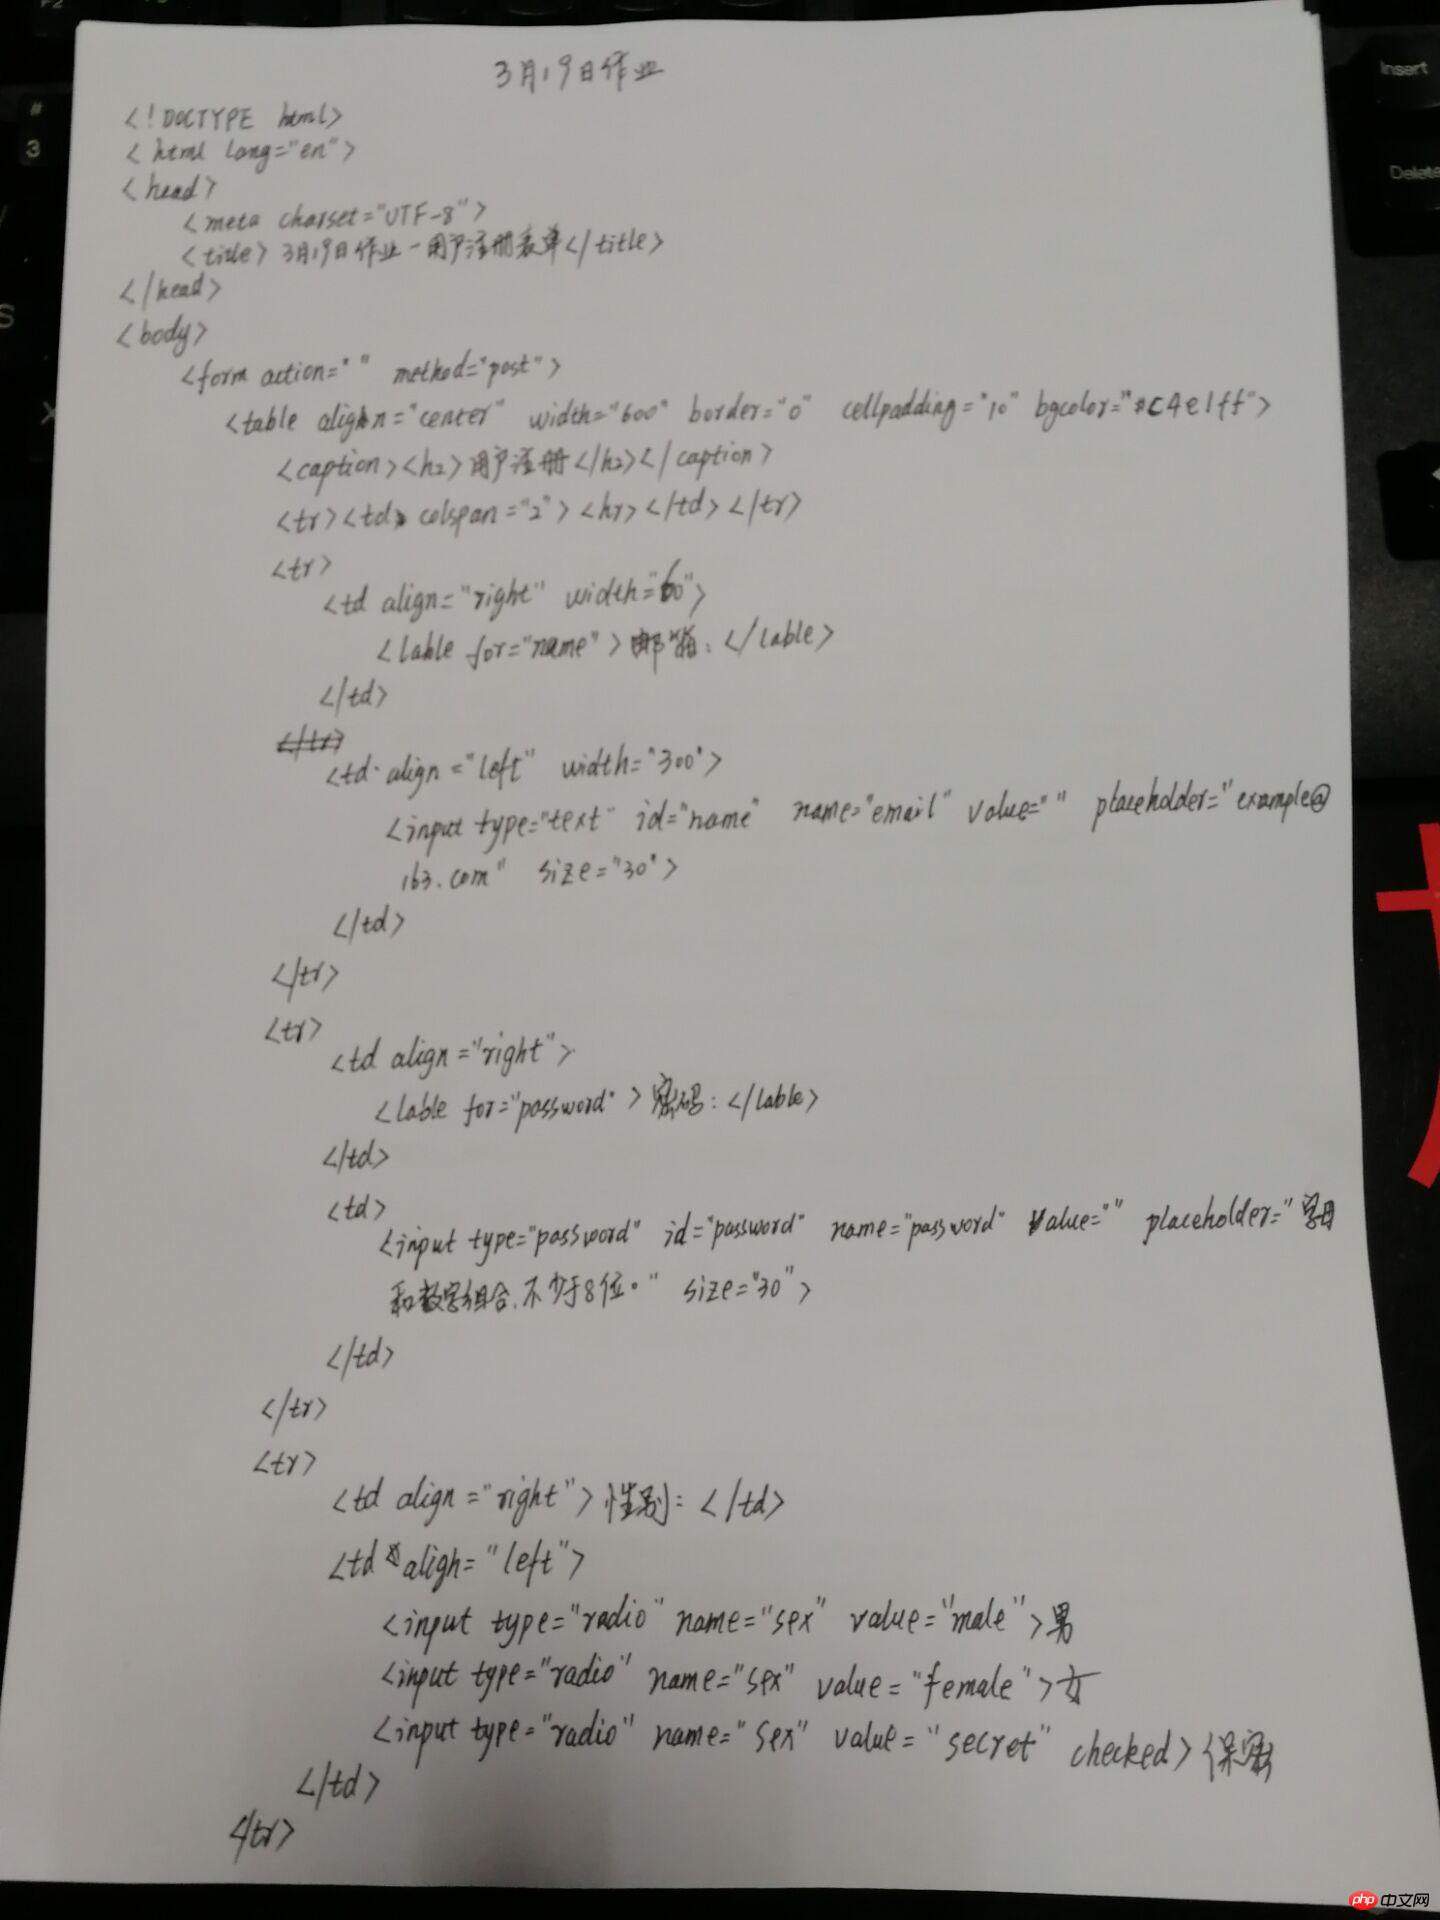 3月19日作业
<!DOCTYPE html>
<html lang="en">
<head>
<meta charset="UTF-8">
<title>3月19日作业-用户注册表单</title>
</head>
<body>
<form action=" " method="post">
<table align="center" width="600" border="0" cellpadding="10" bgcolor="#c4e1ff">
<caption><h2>用户注册</h2></caption>
<tr><td colspan="2"><hr></td></tr>
<tr>
<td align="right" width="60">
<lable for="name">邮箱:</lable>
</td>
</tr>
<td align="left" width="300">
<input type="text" id="name" name="email" value=" " placeholder="example@
163.com" size="30">
</td>
</tr>
<tr>
<td align="right">
<lable for="password">密码:</lable>
</td>
<td>
<input type="password" id="password" name="password" value="" placeholder="字母
和数字组合,不少于8位。" size="30">
</td>
</tr>
<tr>
<td align="right">性别:</td>
<td align="left">
<input type="radio" name="sex" value="male">男
<input type="radio" name="sex" value="female">女
<input type="radio" name="sex" value="secret" checked>保密
</td>
</tr>
Insert
Delete
#
3
F2
S
X
php中文网